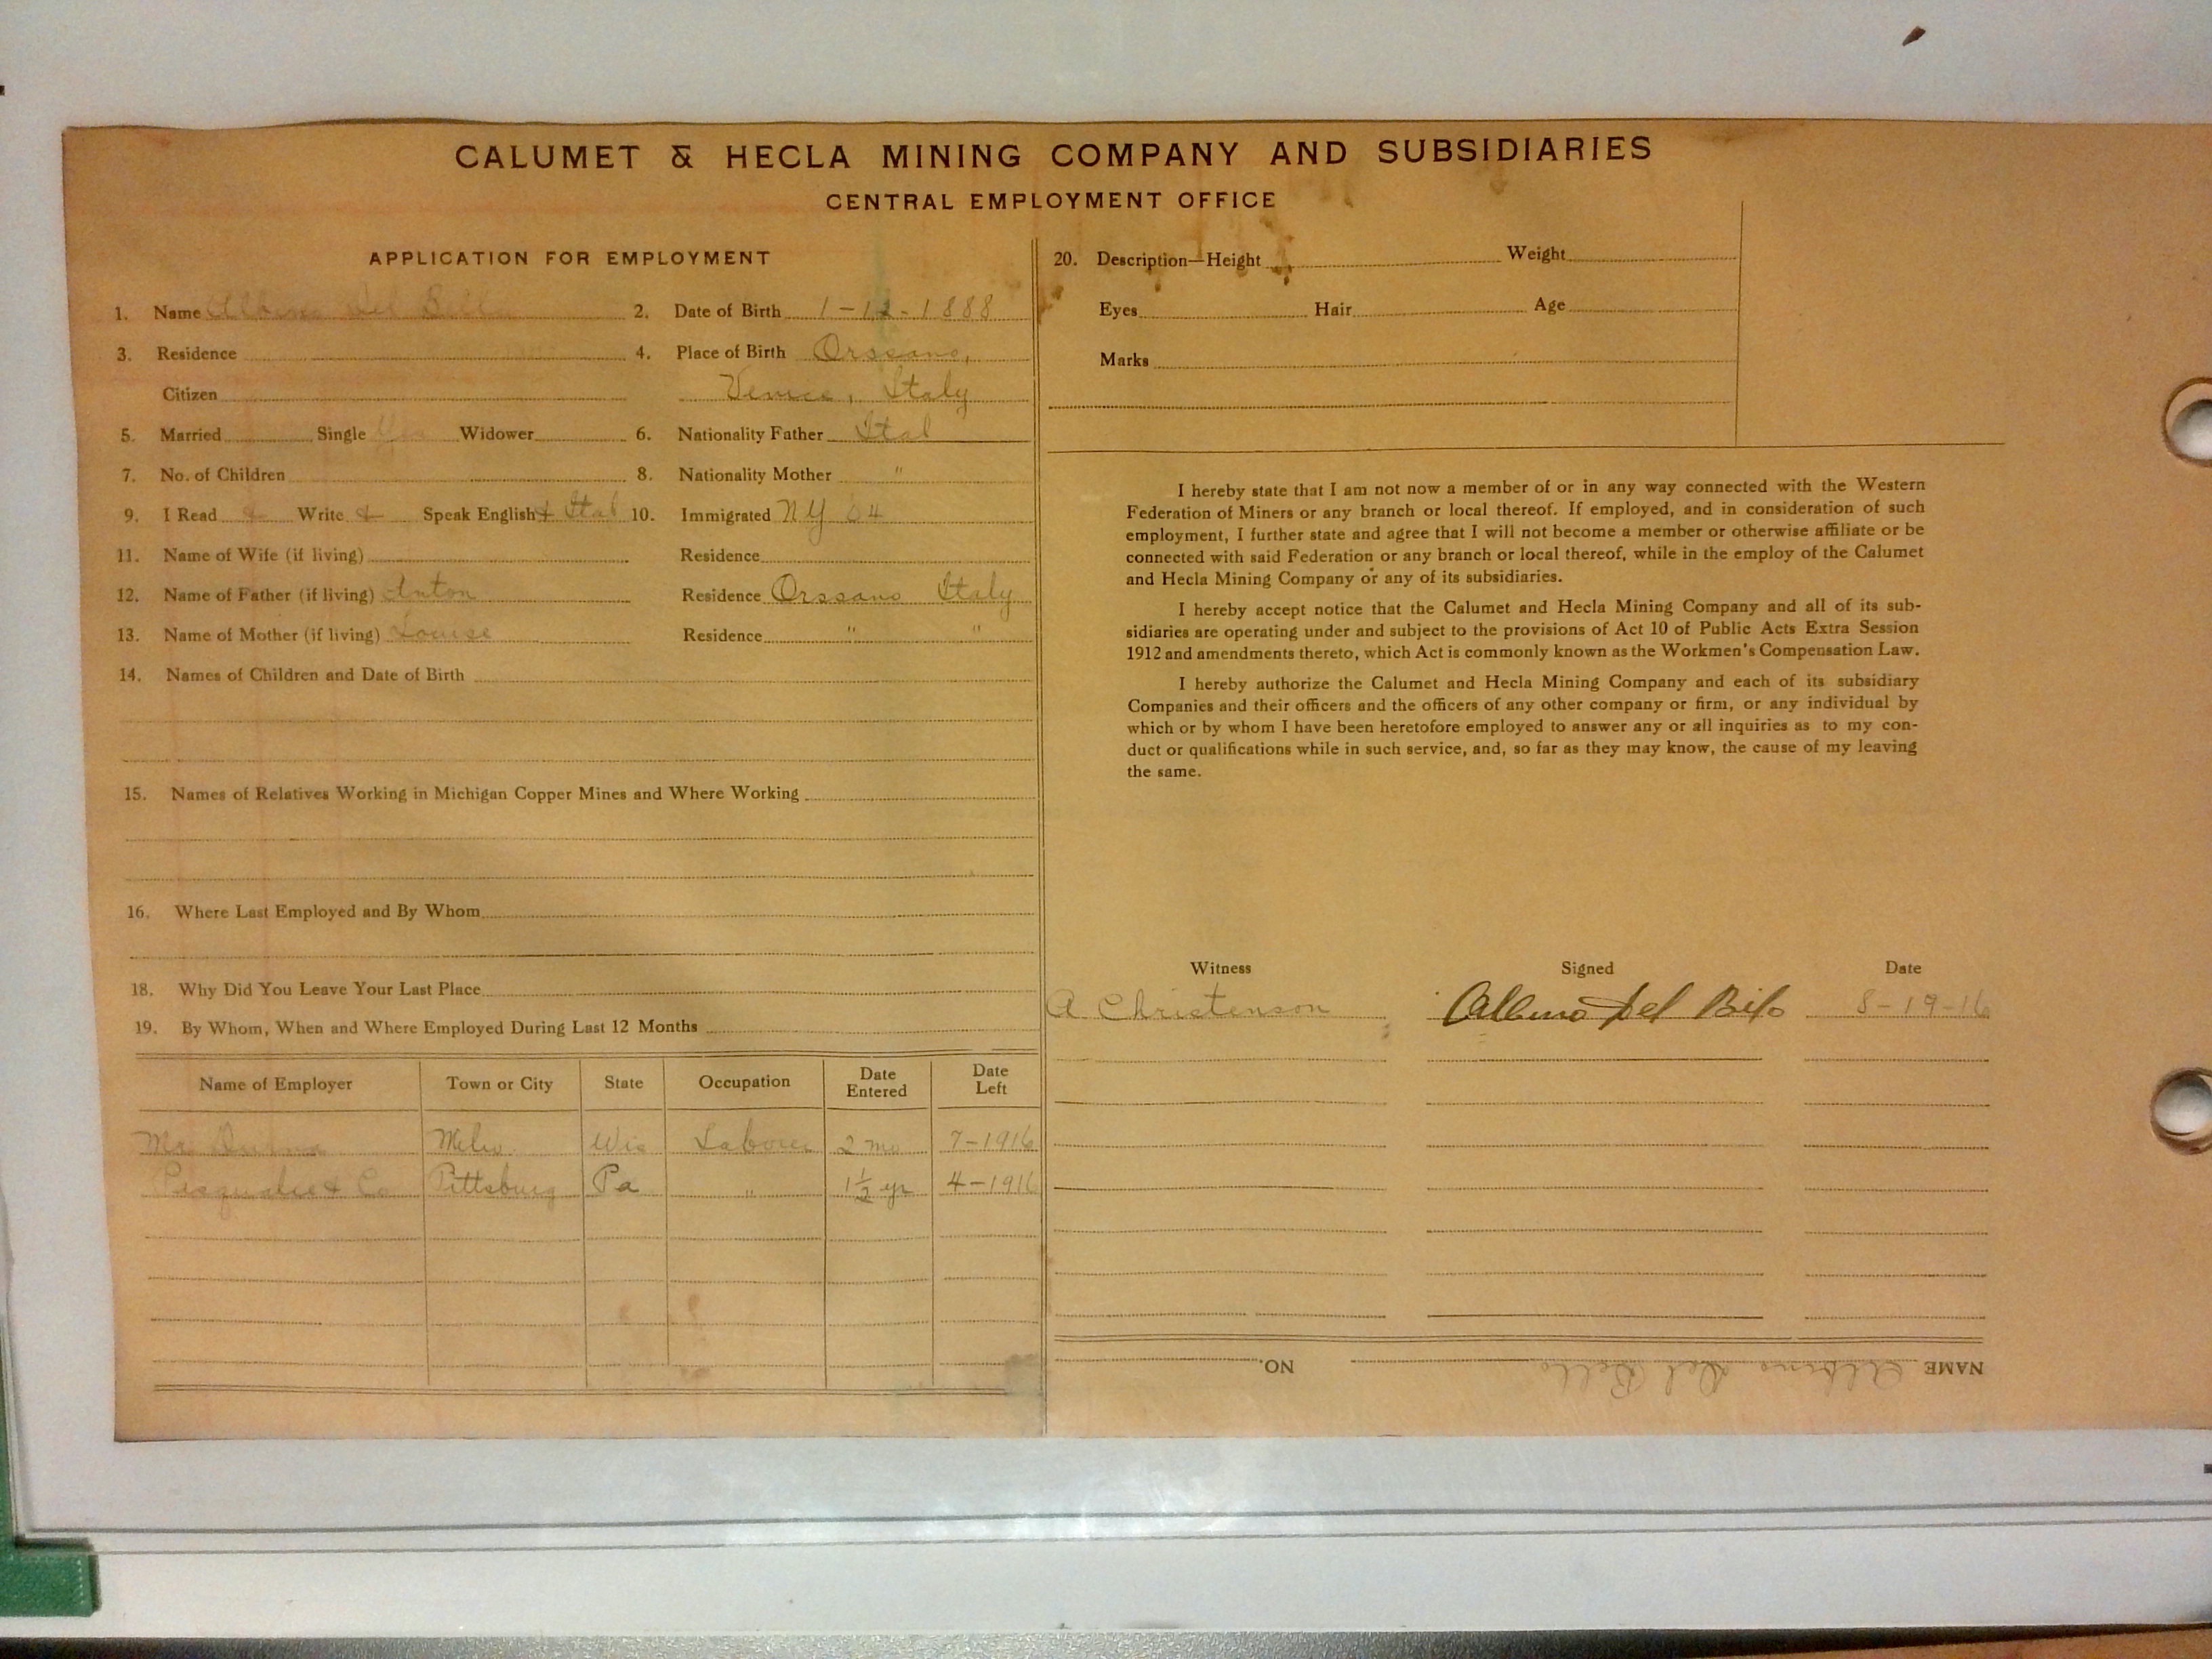 CALUMET & HECLA MINING COMPANY AND SUBSIDIARIES
CENTRAL EMPLOYMENT OFFICE
APPLICATION FOR EMPLOYMENT
1. Name Albino Del Bello 2. Date of Birth 1-12-1888
3. Residence 4. Place of Birth Orssano,
Citizen Venice, Italy
5. Married Single Yes Widower 6. Nationality Father Ital
7. No. of Children 8. Nationality Mother "
9. I Read + Write + Speak English + Ital 10. Immigrated NY 04
11. Name of Wife (if living) Residence
12. Name of Father (if living) Anton Residence Orssano Italy
13. Name of Mother (if living) Louise Residence " "
14. Names of Children and Date of Birth
15. Names of Relatives Working in Michigan Copper Mines and Where Working
16. Where Last Employed and By Whom
18. Why Did You Leave Your Last Place
19. By Whom, When and Where Employed During Last 12 Months
Name of Employer Town or City State Occupation Date Entered Date Left
Mr Milw. Wis Laborer 2 mo 7-1916
& Co Pittsburg Pa " 1½ yr 4-1916
20. Description—Height Weight
Eyes Hair Age
Marks
I hereby state that I am not now a member of or in any way connected with the Western
Federation of Miners or any branch or local thereof. If employed, and in consideration of such
employment, I further state and agree that I will not become a member or otherwise affiliate or be
connected with said Federation or any branch or local thereof, while in the employ of the Calumet
and Hecla Mining Company or any of its subsidiaries.
I hereby accept notice that the Calumet and Hecla Mining Company and all of its sub-
sidiaries are operating under and subject to the provisions of Act 10 of Public Acts Extra Session
1912 and amendments thereto, which Act is commonly known as the Workmen's Compensation Law.
I hereby authorize the Calumet and Hecla Mining Company and each of its subsidiary
Companies and their officers and the officers of any other company or firm, or any individual by
which or by whom I have been heretofore employed to answer any or all inquiries as to my con-
duct or qualifications while in such service, and, so far as they may know, the cause of my leaving
the same.
Witness Signed Date
A Christenson Albino Del Bilo 8-19-16
NAME Albino Del Bello NO.